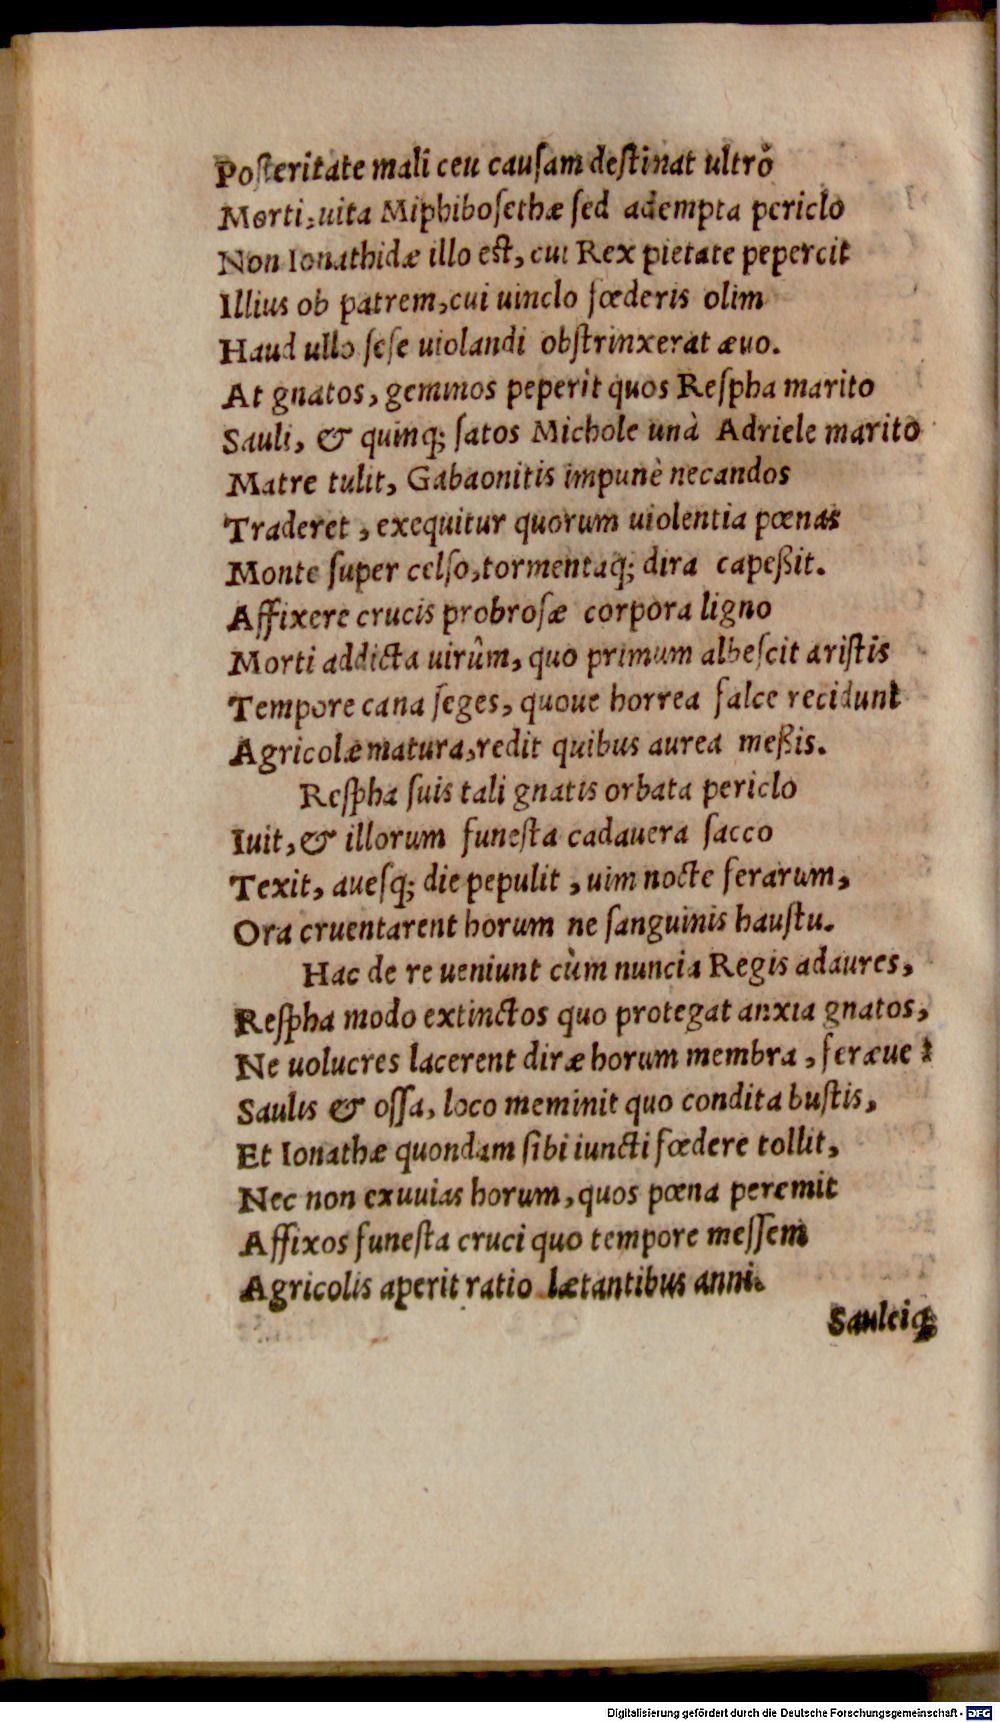 Posteritate mali ceu causam destinat ultrò
Morti, uita Miphibosethæ sed adempta periclo
Non Ionathidæ illo est, cui Rex pietate pepercit
Illius ob patrem, cui uinclo fœderis olim
Haud ullo sese uiolandi obstrinxerat æuo.
At gnatos, geminos peperit quos Respha marito
Sauli, & quinq; satos Michole unà Adriele marito
Matre tulit, Gabaonitis impunè necandos
Traderet, exequitur quorum uiolentia pœnas
Monte super celso, tormentaq; dira capeßit.
Affixere crucis probrosæ corpora ligno
Morti addicta uirûm, quo primum albescit aristis
Tempore cana seges, quoue horrea falce recidunt
Agricolæ matura, redit quibus aurea meßis.
Respha suis tali gnatis orbata periclo
Iuit, & illorum funesta cadauera sacco
Texit, auesq; die pepulit, uim nocte ferarum,
Ora cruentarent horum ne sanguinis haustu.
Hac de re ueniunt cùm nuncia Regis ad aures,
Respha modo extinctos quo protegat anxia gnatos,
Ne uolucres lacerent diræ horum membra, feræue:
Saulis & ossa, loco meminit quo condita bustis,
Et Ionathæ quondam sibi iuncti fœdere tollit,
Nec non exuuias horum, quos pœna peremit
Affixos funesta cruci quo tempore messem
Agricolis aperit ratio lætantibus anni.
Sauleiq;
Digitalisierung gefördert durch die Deutsche Forschungsgemeinschaft - DFG